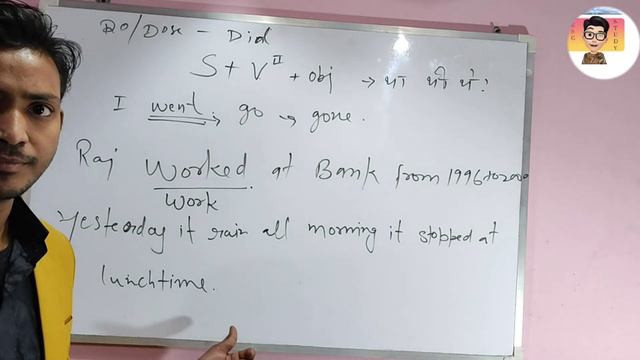 Do/Dose - Did
S + V II + obj → था थी थे :
I went. go → gone.
Raj Worked at Bank from 1996 to 2000
Work
Yesterday it rain all morning it stopped at
lunchtime.
STUDY